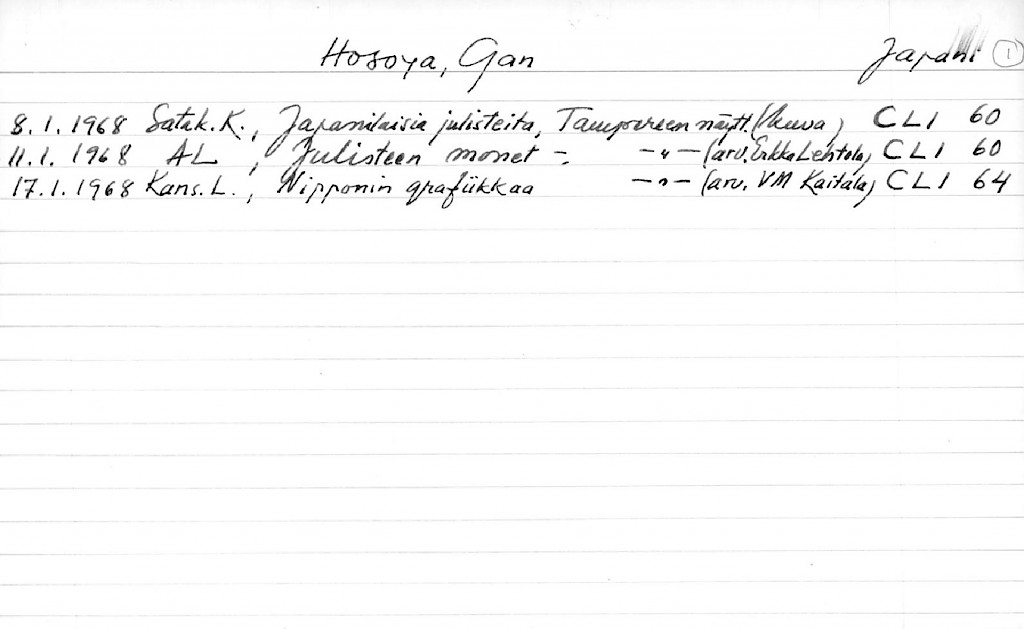 Hosoya, Gan Japani 1
8.1.1968 Satak.K., Japanilaisia julisteita, Tampereen näytt. (kuva) CLI 60
11.1.1968 AL, Julisteen monet -, -"- (arv. Erkka Lehtola) CLI 60
17.1.1968 Kans.L., Nipponin grafiikkaa -"- (arv. VM Kaitala) CLI 64